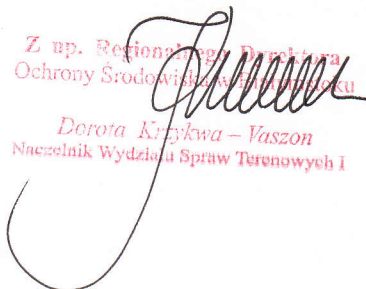 Z up. Regionalnego Dyrektora
Ochrony Środowiska w Białymstoku
Dorota Krzykwa – Vaszon
Naczelnik Wydziału Spraw Terenowych I